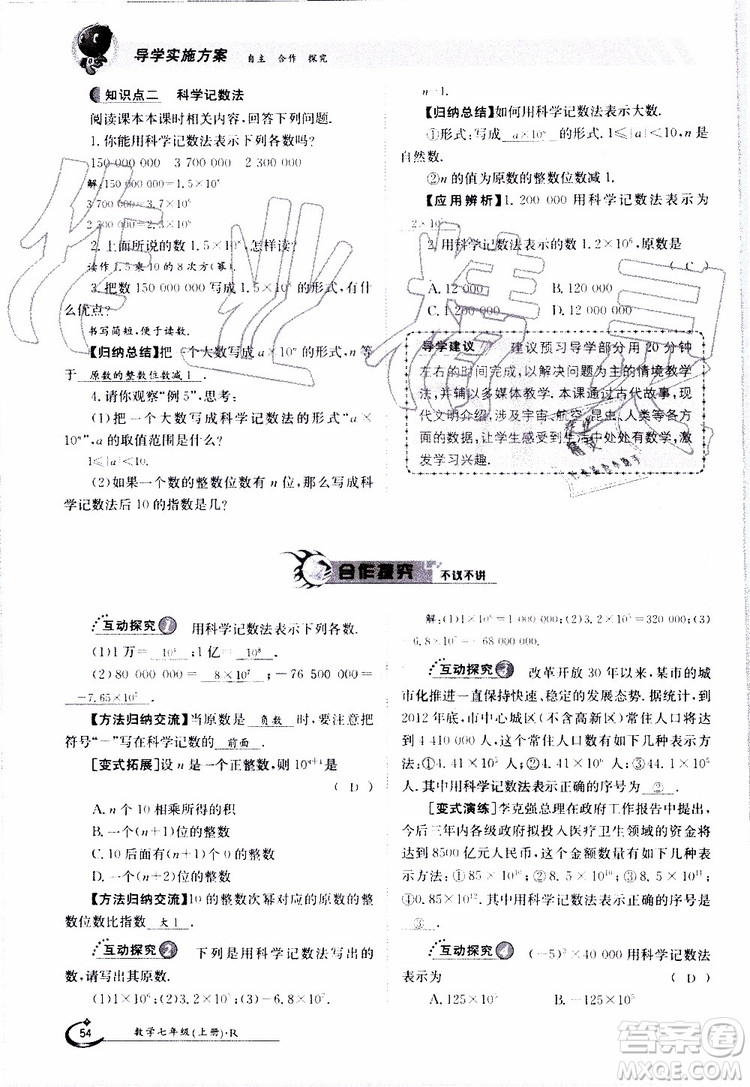 导学实施方案 自主 合作 探究
知识点二 科学记数法
阅读课本本课时相关内容,回答下列问题.
1. 你能用科学记数法表示下列各数吗?
150 000 000 3 700 000 2 300 000
解:150 000 000=1.5×10⁸
3 700 000=3.7×10⁶
2 300 000=2.3×10⁶
2. 上面所说的数 1.5×10⁸,怎样读?
读作 1.5 乘 10 的 8 次方(幂).
3. 把数 150 000 000 写成 1.5×10⁸ 的形式,有什
么优点?
书写简短,便于读数.
【归纳总结】 把一个大数写成 a×10ⁿ 的形式,关键在
于 原数的整数位数减 1 .
4. 请你观察“例 5”,思考:
(1)把一个大数写成科学记数法的形式“a×
10ⁿ”,a 的取值范围是什么?
1≤|a|<10
(2)如果一个数的整数位有 n 位,那么写成科
学记数法后 10 的指数是几?
n-1.
【归纳总结】如何用科学记数法表示大数.
①形式:写成 a×10ⁿ 的形式. 1≤|a|<10,n 是
自然数.
②n 的值为原数的整数位数减 1.
【应用辨析】1. 200 000 用科学记数法表示为
2×10⁵
2. 用科学记数法表示的数 1.2×10⁶,原数是
( C )
A. 12 000 B. 120 000
C. 1 200 000 D. 12 000 000
导学建议 建议预习导学部分用 20 分钟
左右的时间完成,以解决问题为主的情境教学
法,并辅以多媒体教学. 本课通过古代故事,现
代文明介绍,涉及宇宙、航空、昆虫、人类等各方
面的数据,让学生感受到生活中处处有数学,以
激发学习兴趣.
合作探究 不议不讲
互动探究 1 用科学记数法表示下列各数.
(1)1万= 10⁴ ;1亿= 10⁸ .
(2)80 000 000= 8×10⁷ ,-76 500 000=
-7.65×10⁷ .
【方法归纳交流】当原数是 负数 时,要注意把
符号“-”写在科学记数的 前面 .
[变式拓展]设 n 是一个正整数,则 10ⁿ⁺¹ 是
( D )
A. n 个 10 相乘所得的积
B. 一个(n+1)位的整数
C. 10 后面有(n+1)个 0 的整数
D. 一个(n+2)位的整数
【方法归纳交流】10 的整数次幂对应的原数的整
数位数比指数 大 1 .
互动探究 2 下列是用科学记数法写出的
数,请写出其原数.
(1)1×10⁶ (2)3.2×10⁵ (3)-6.8×10⁷
解:(1)1×10⁶=1 000 000;(2)3.2×10⁵=320 000;(3)
-6.8×10⁷=-68 000 000.
互动探究 3 改革开放 30 年以来,某市的城
市化推进一直保持快速、稳定的发展态势. 据统计,到
2012 年底,市中心城区(不含高新区)常住人口将达到
4 410 000 人,
人. 其中用科学记数法表示正确的序号为 ② .
[变式演练]李克强总理在政府工作报告中提出,
今后三年内各级政府拟投入医疗卫生领域的资金将
达到 8500 亿元人民币,
③ .
互动探究 4 (-5)³×40 000 用科学记数法
表示为 ( D )
A. 125×10⁵ B. -125×10⁵
54 数学七年级(上册)·R